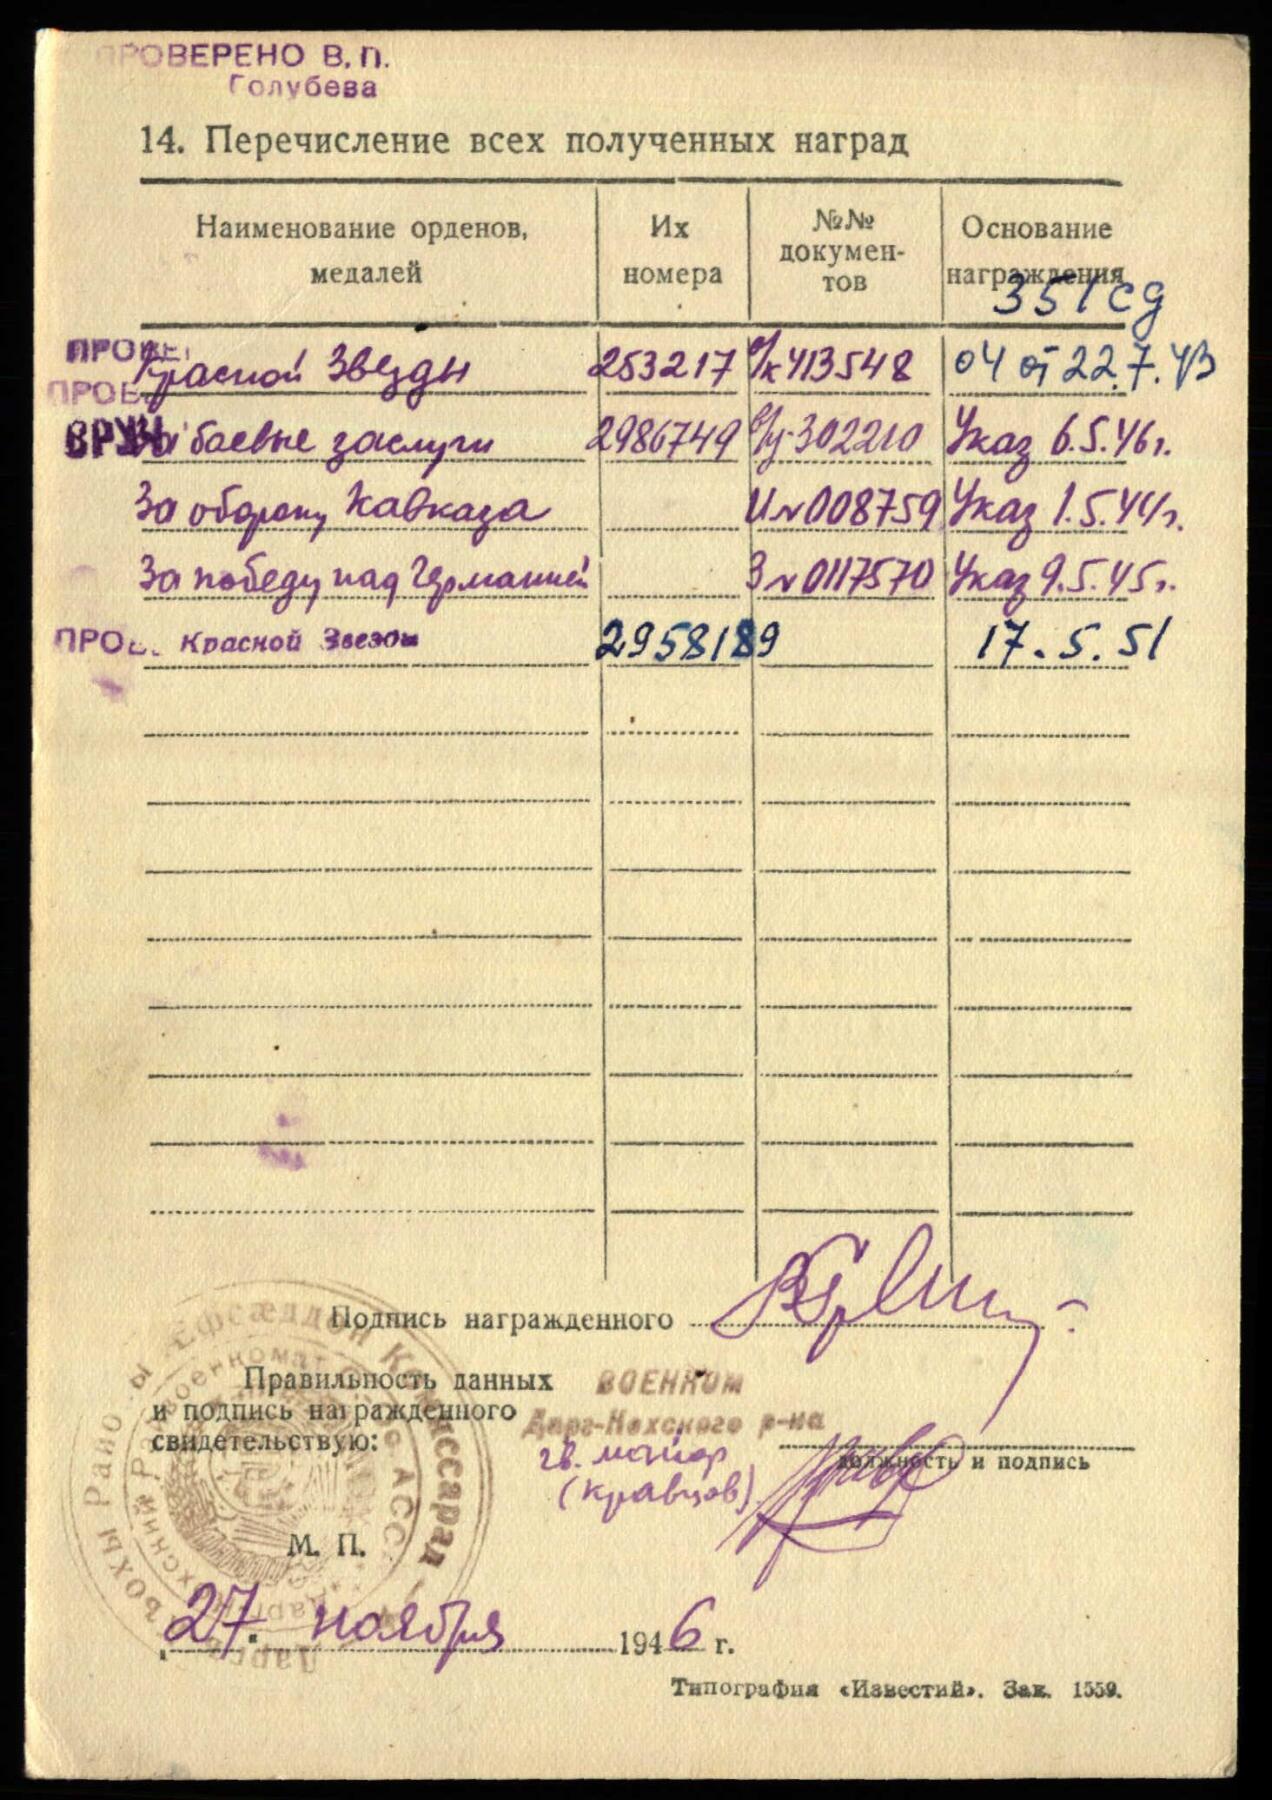 ПРОВЕРЕНО В. П.
Голубева
14. Перечисление всех полученных наград
Наименование орденов, медалей | Их номера | №№ документов | Основание награждения
351 сд
Красной Звезды 253217 о/к 413548 04 от 22.7.43
За боевые заслуги 2986749 302210 Указ 6.5.46г.
За оборону Кавказа И №008759 Указ 1.5.44г.
За победу над Германией З №0117570 Указ 9.5.45г.
Красной Звезды 2958189 17.5.51
Подпись награжденного
Правильность данных
и подпись награжденного
свидетельствую:
ВОЕННОМ
Дарг-Кохского р-на
гв. майор
(Кравцов)
должность и подпись
М. П.
27. ноября 1946 г.
Типография «Известий». Зак. 1559.